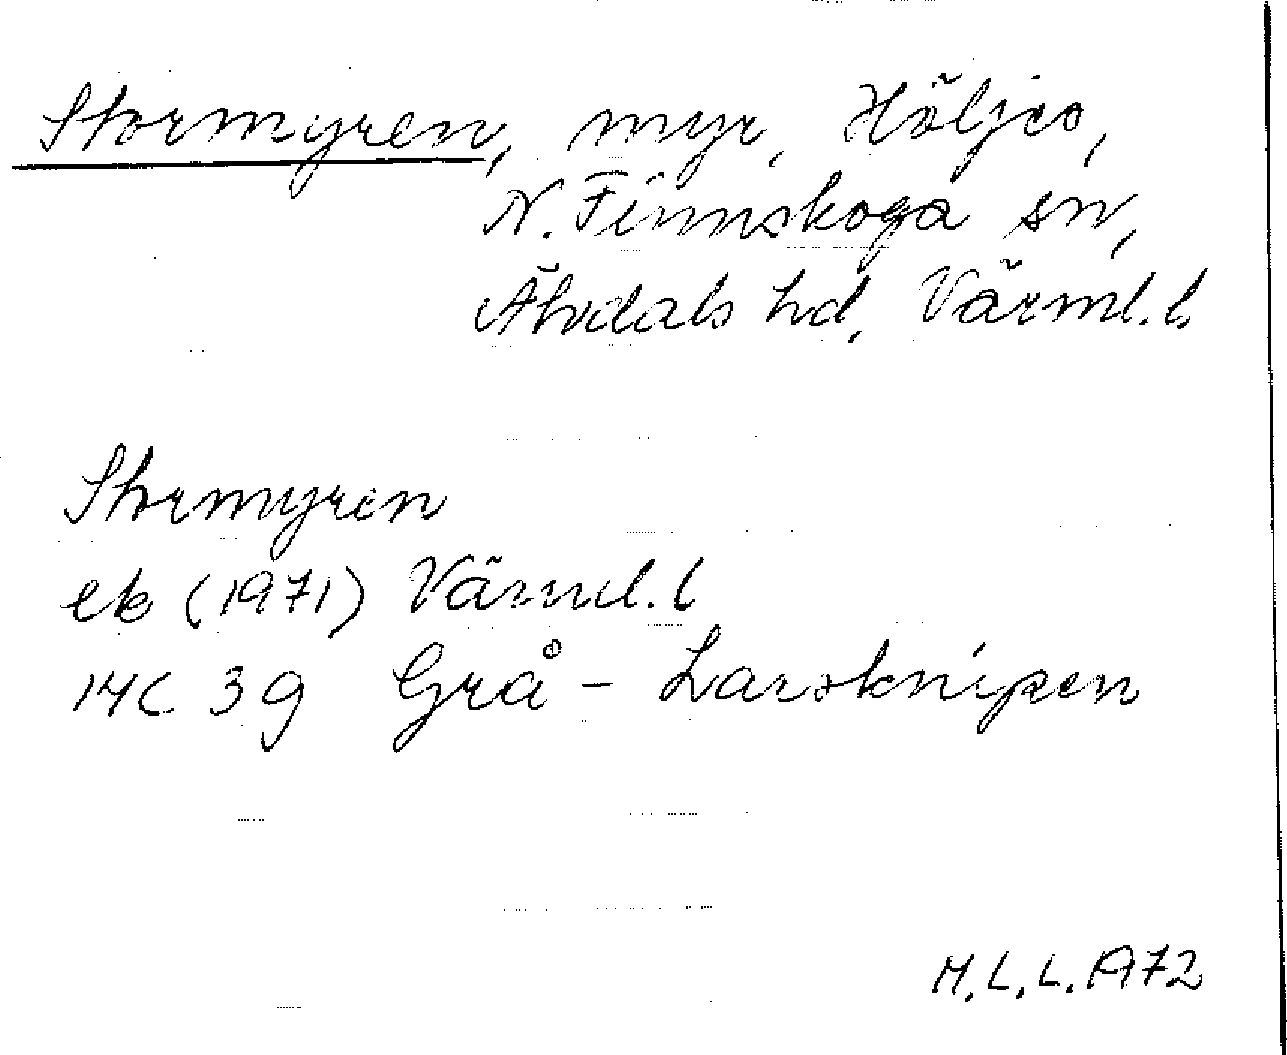 Stormyren, myr, Höljes,
N. Finnskoga sn,
Älvdals hd, Värml. l.
Stormyren
ek (1971) Värml. l
14C 3g Grå - Larsknipen
M.L.L. 1972